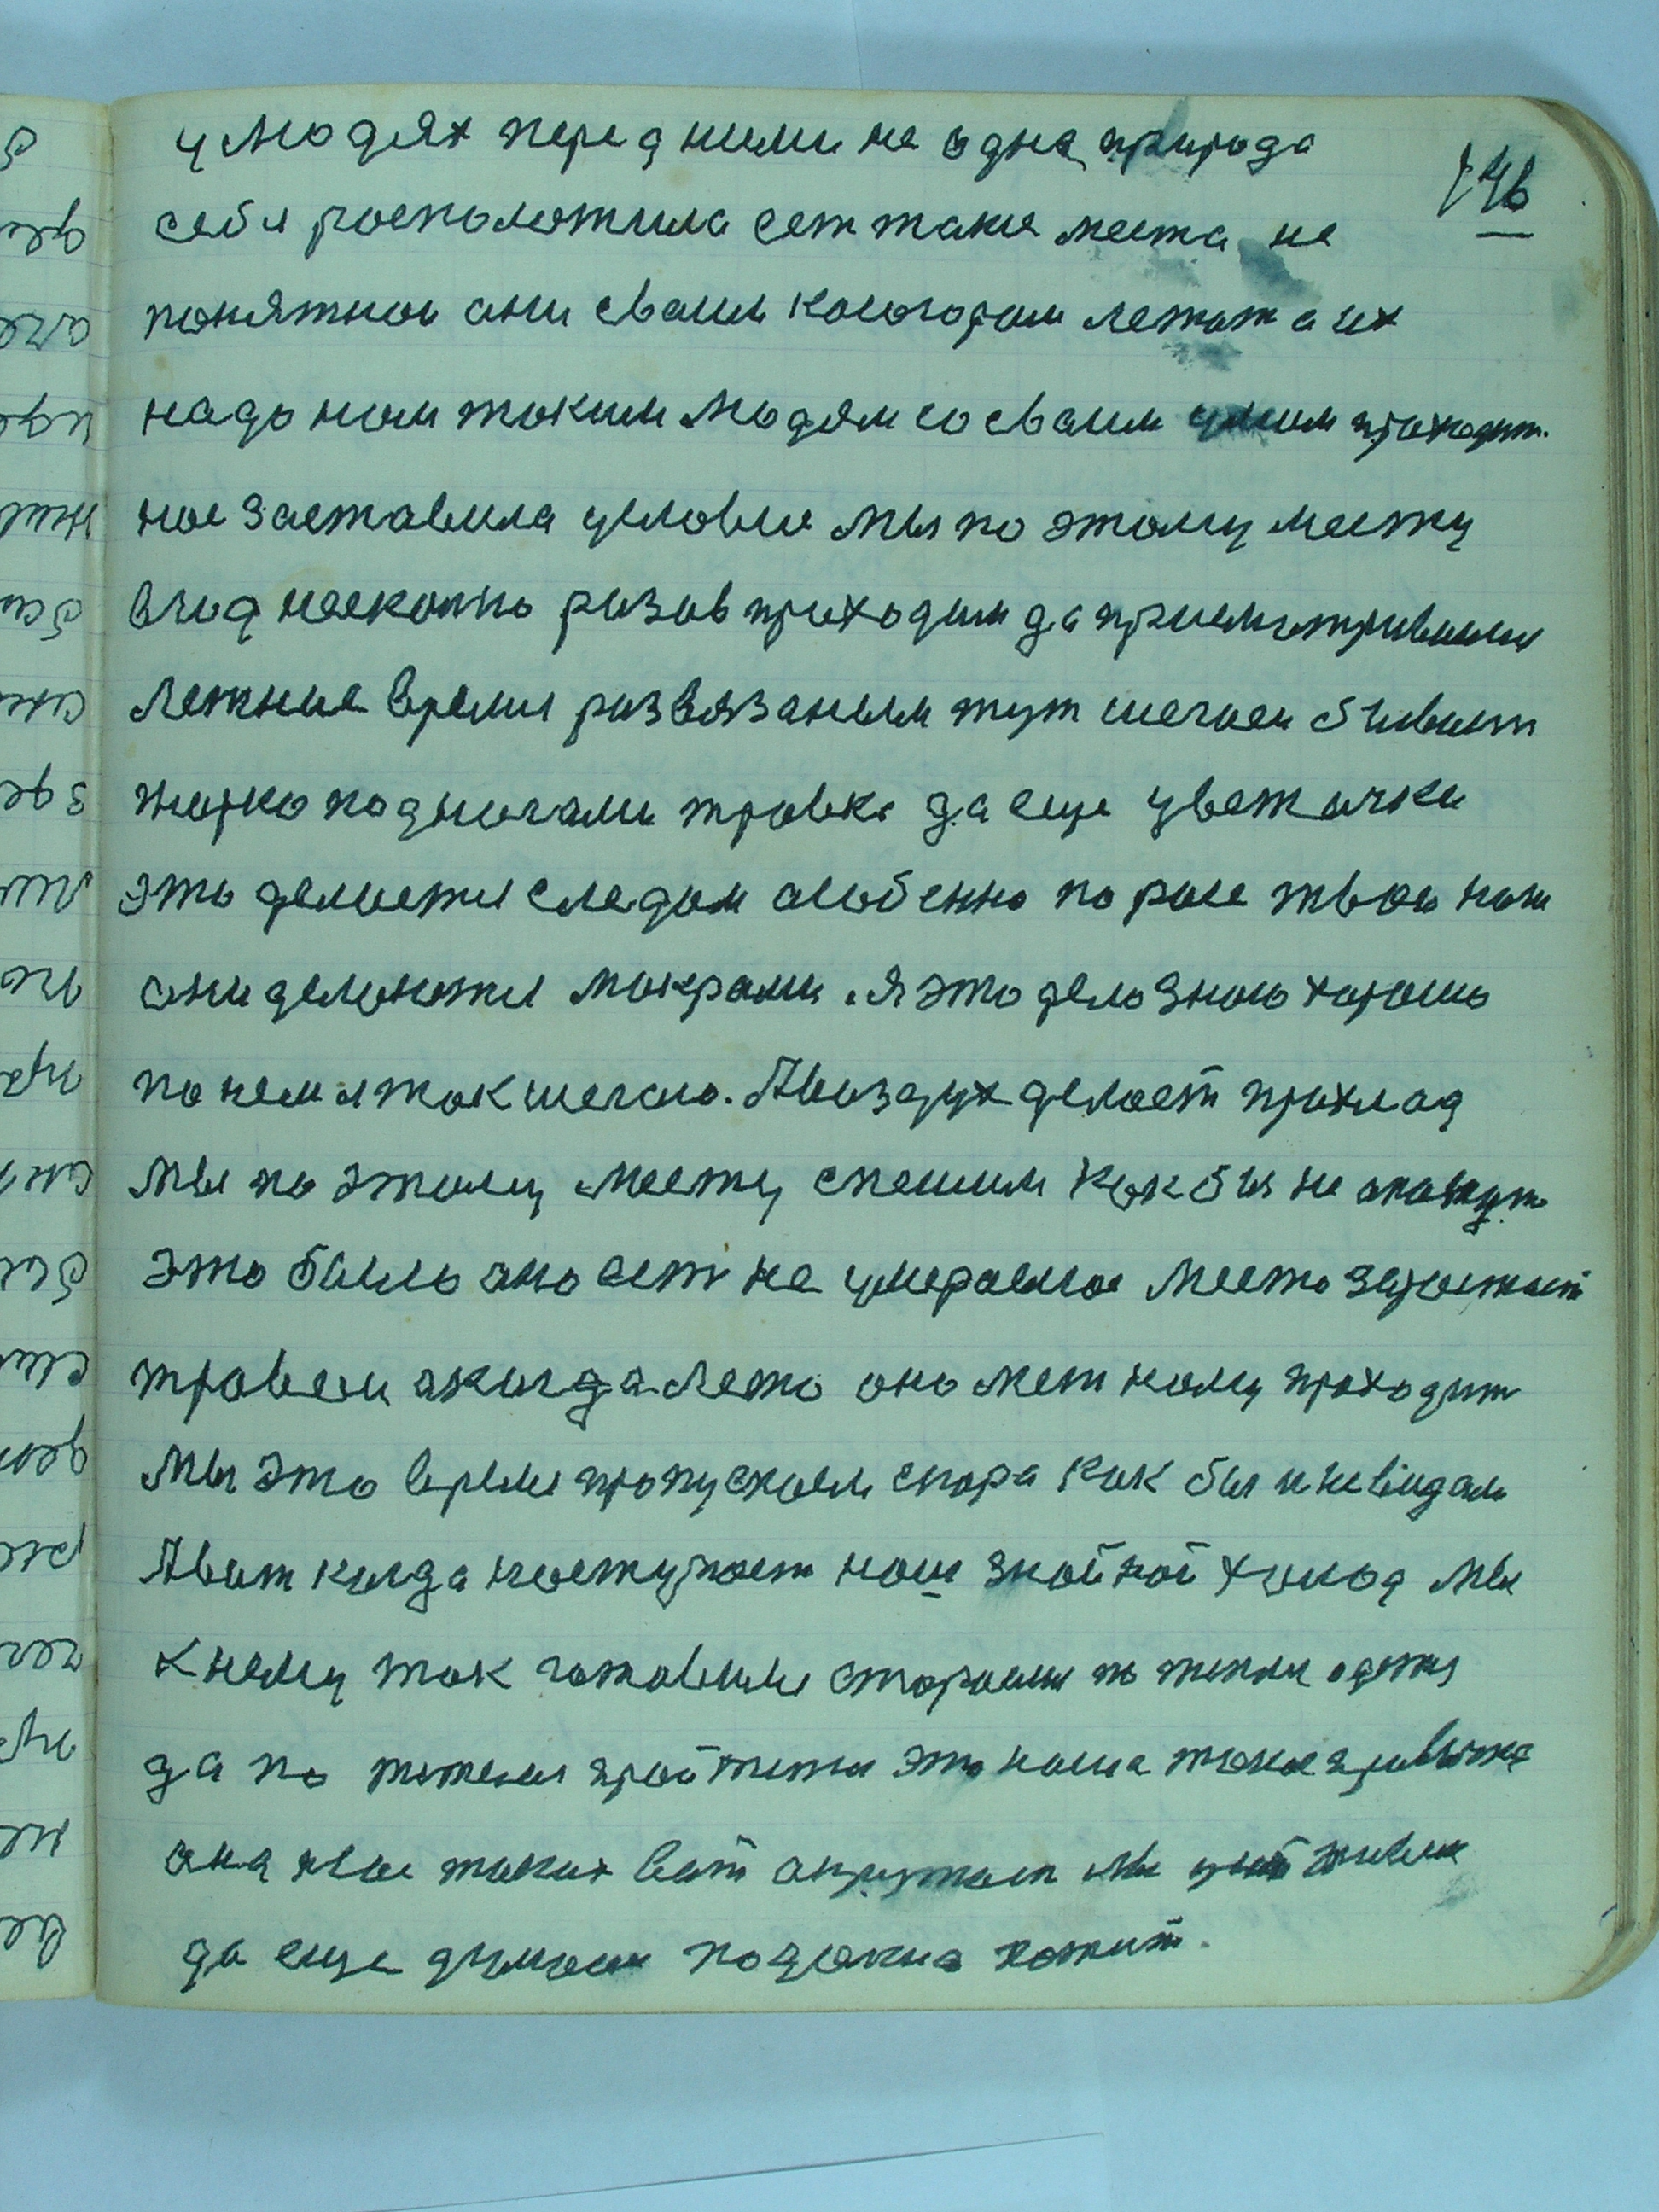 146
у людях перед ними не одна природа
себя росположила ест такие места не
понятное они сваим косогорам лежат а их
надо нам таким людям со сваим умом проходит
нас заставила условие мы по этому месту
в год несколко разов проходим да присматриваимся
летние время развязаным тут шегаеш бывает
жарко под ногами травка да еще цветочки
это делается следам особенно по росе твои ноги
они делаются мокрами. Я это дело знаю хорошо
по нем я так шегаю. А воздух делает прохлад
мы по этому месту спешим как бы не
это было оно ест не умераемое место заростает
травой а когда лето оно лет кому проходит
мы это время пропускаем скора как бы и не видали
А вот когда наступает наш знойной холод мы
к нему так готовимся стораемся по теплей одется
да по тежелей это наша такая привычка
она нас таких вот окружает мы живем
да еще думаем пожит.